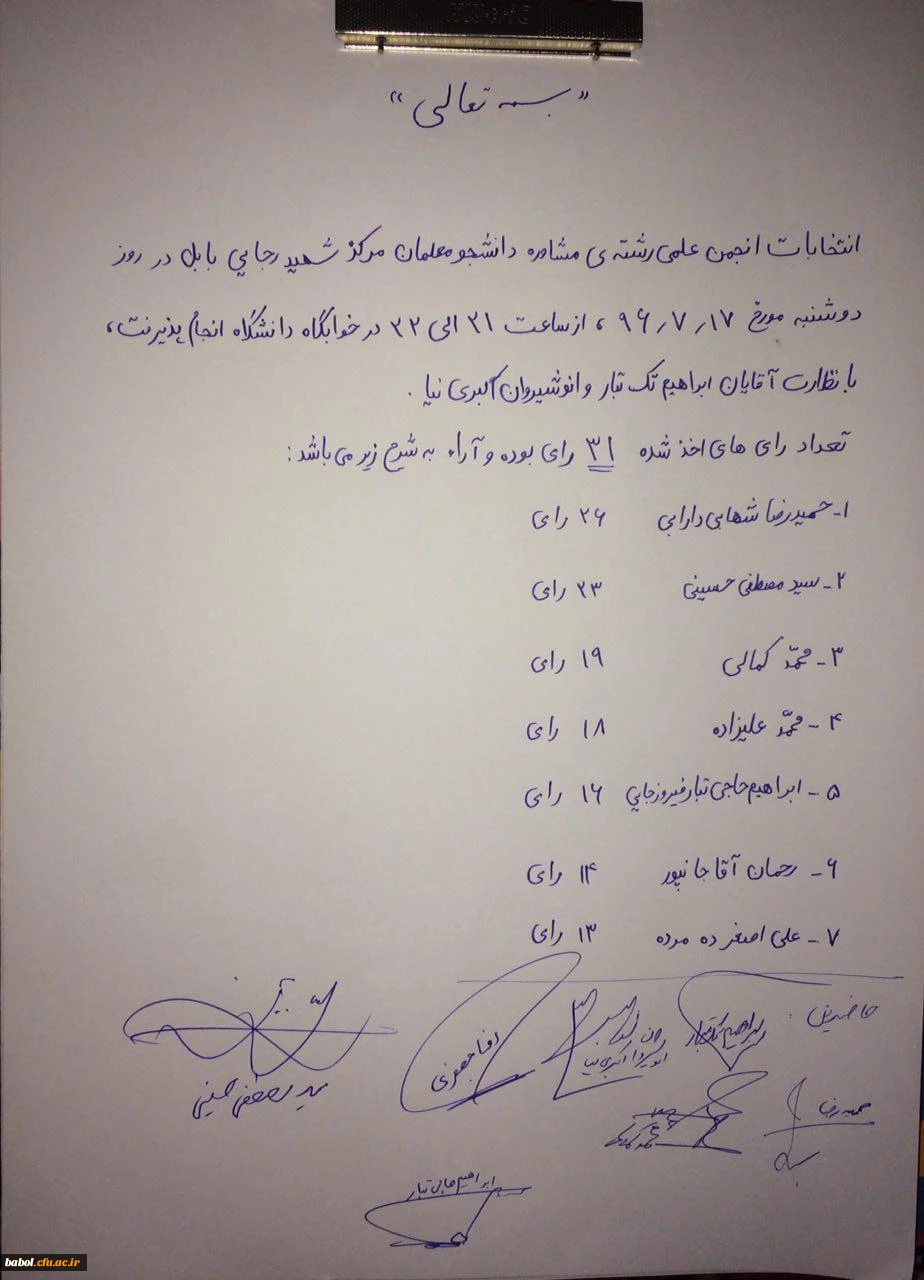 « بسمه تعالی »
انتخابات انجمن علمی رشته ی مشاوره دانشجو معلمان مرکز شهید رجایی بابل در روز
دوشنبه مورخ ۹۶٫۷٫۱۷ ، از ساعت ۲۱ الی ۲۲ در خوابگاه دانشگاه انجام پذیرفت،
با نظارت آقایان ابراهیم تک تبار و انوشیروان اکبری نیا .
تعداد رای های اخذ شده ۳۱ رای بوده و آراء به شرح زیر می باشد :
۱- حمیدرضا شهابی دارابی ۲۶ رای
۲- سید مصطفی حسینی ۲۳ رای
۳- محمّد کمالی ۱۹ رای
۴- محمّد علیزاده ۱۸ رای
۵- ابراهیم حاجی تبار فیروزجایی ۱۶ رای
۶- رحمان آقا جانپور ۱۴ رای
۷- علی اصغر ده مرده ۱۳ رای
حاضرین : ابراهیم تک تبار
اکبری نیا
رضا جعفری
سید مصطفی حسینی
حمیدرضا
ابراهیم حاجی تبار
babol.cfu.ac.ir